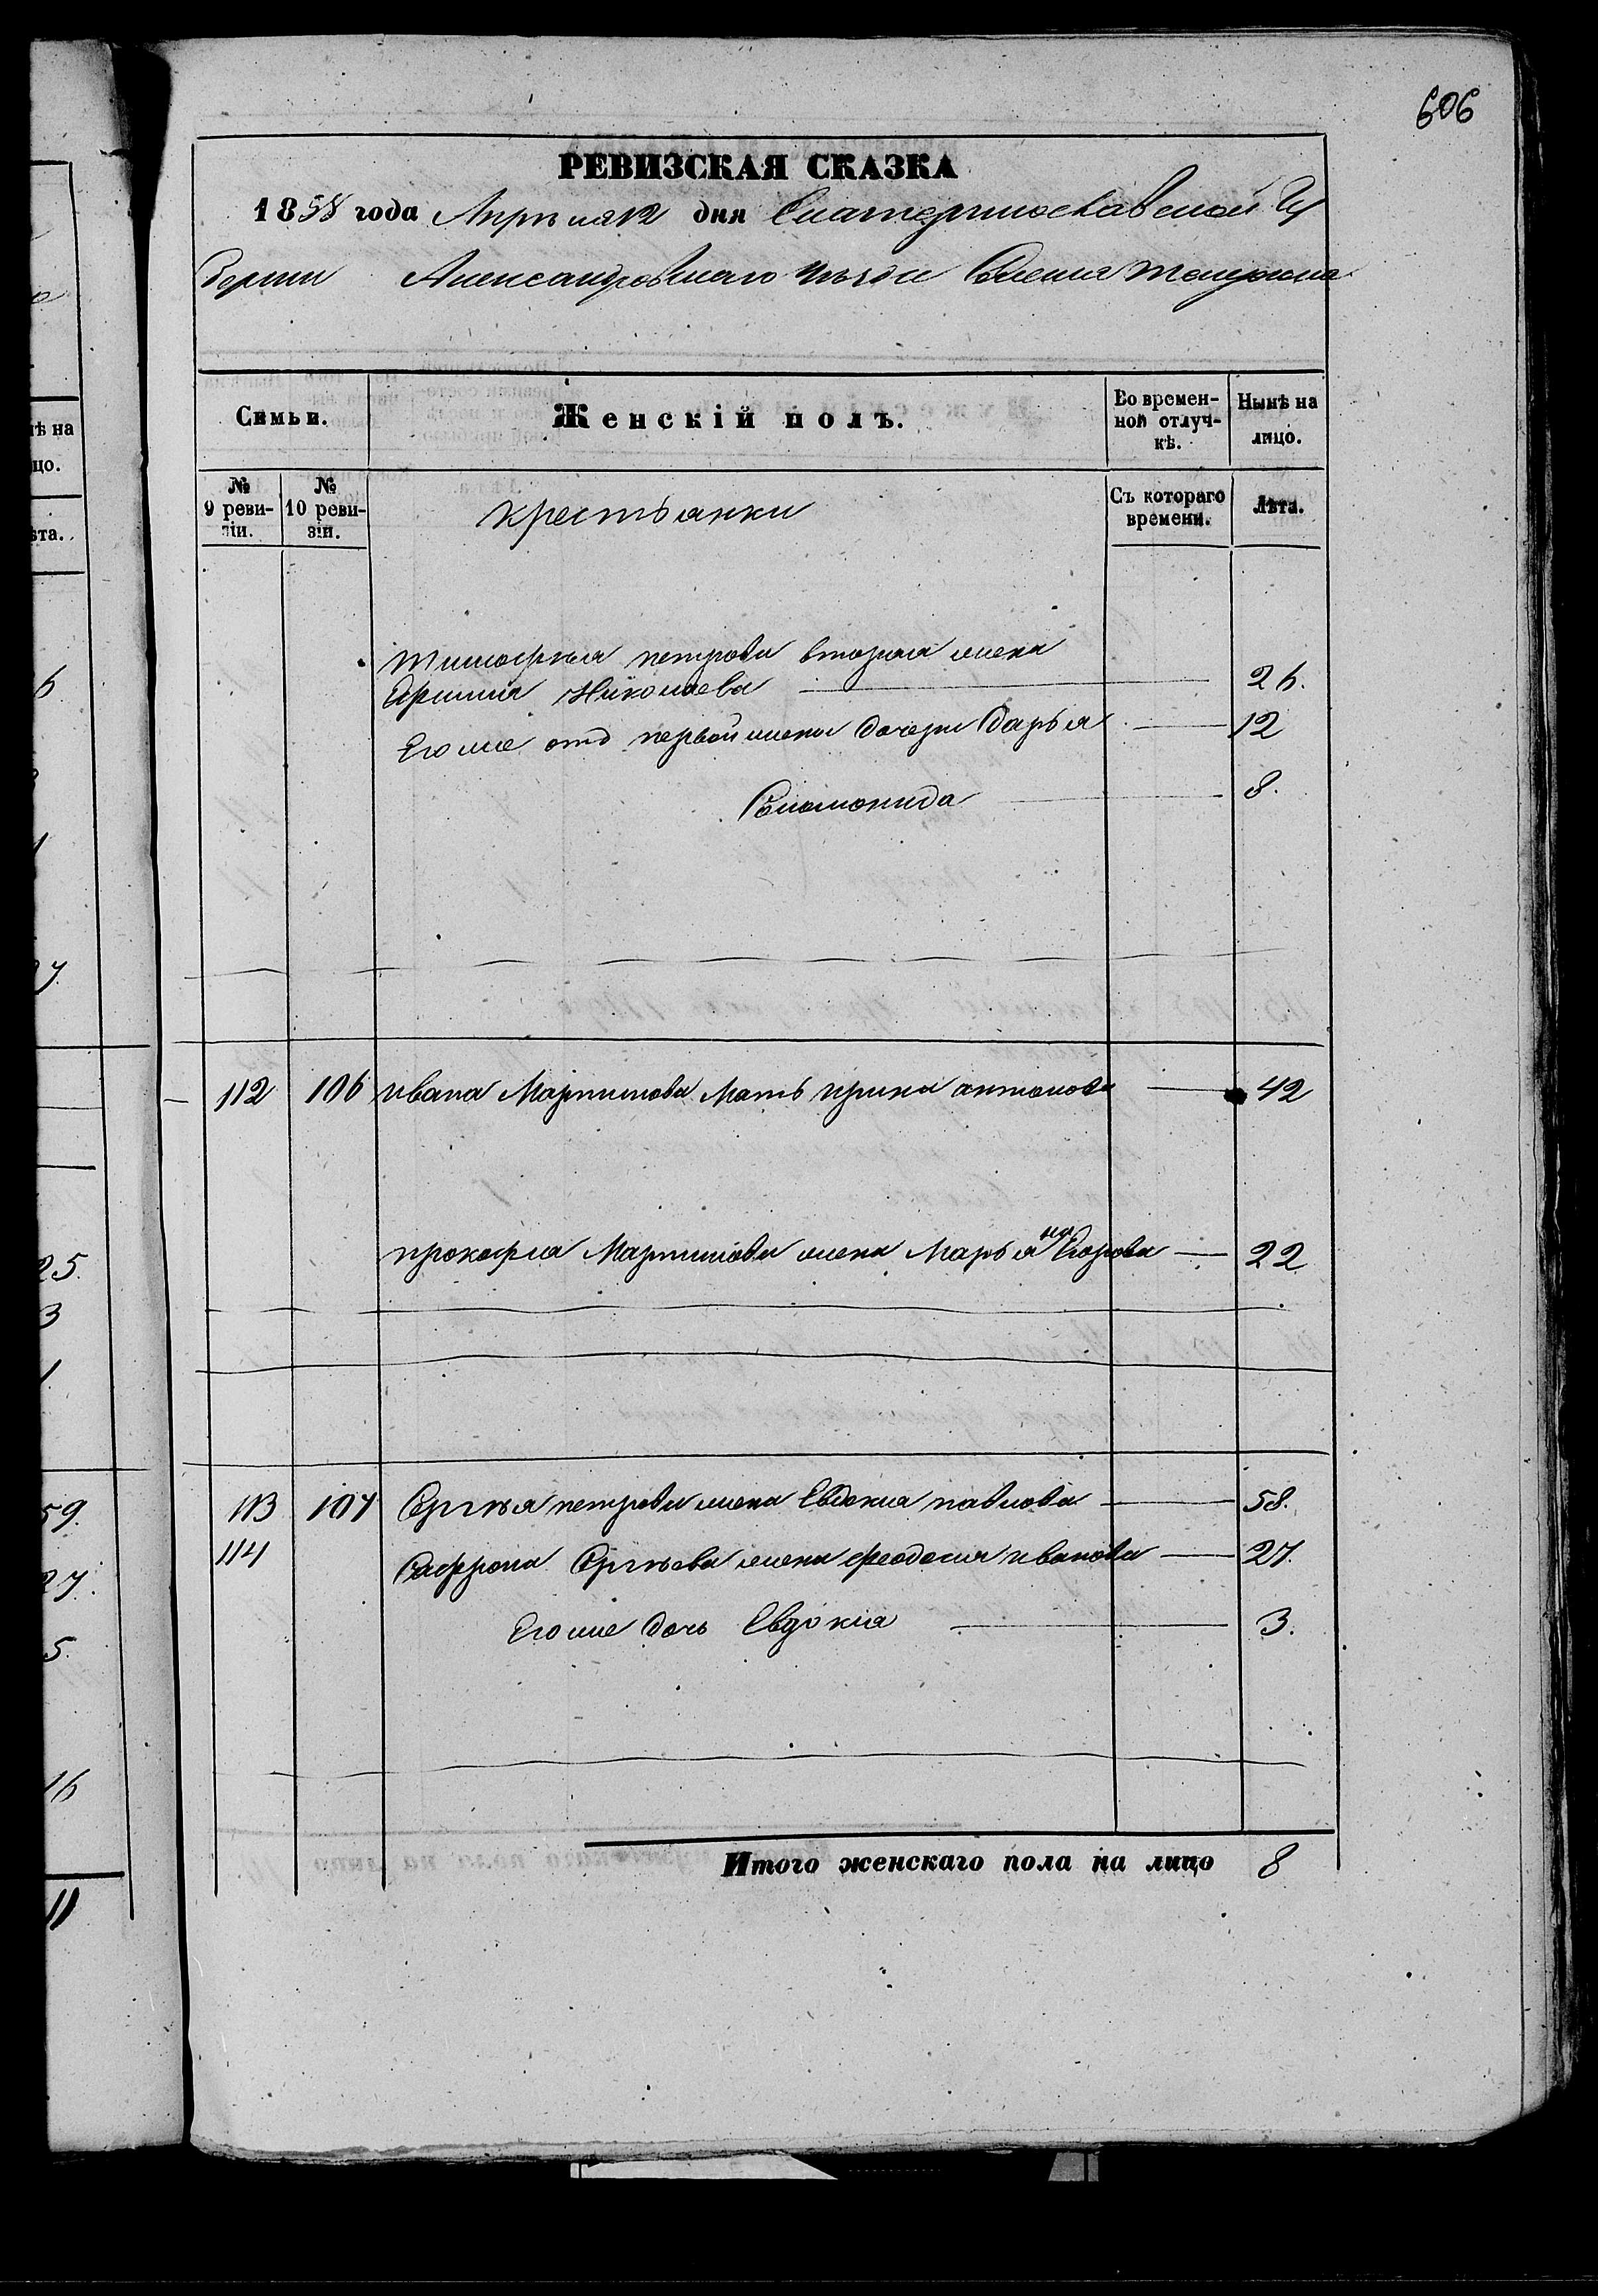 606
РЕВИЗСКАЯ СКАЗКА
1858 года Апрѣля 12 дня Екатеринославской Гу
берніи Александровскаго Уѣзда Селенія
Семьи. Женскій полъ. Во времен-ной отлуч-кѣ. Нынѣ на лицо.
№ 9 реви-зіи. № 10 реви-зіи. Крестьянки Съ котораго времени. Лѣта.
Тимофѣя петрова вторая жена
Ирина Николаева 26.
Его же отъ первой жены дочери Дарья 12
Соломонида 8.
112 106 ивана Мартинова Мать ирина антонова 42
прокофия Мартинова жена Марья Егорова 22
113 107 Сергѣя петрова жена Евдокия павлова 58.
114 Сафрона Сергѣева жена феодосия иванова 27.
Его же дочь Евдокия 3.
Итого женскаго пола на лицо 8
нѣ на
цо.
ѣта.
6
7.
25.
3
1.
59.
27.
5.
16
11